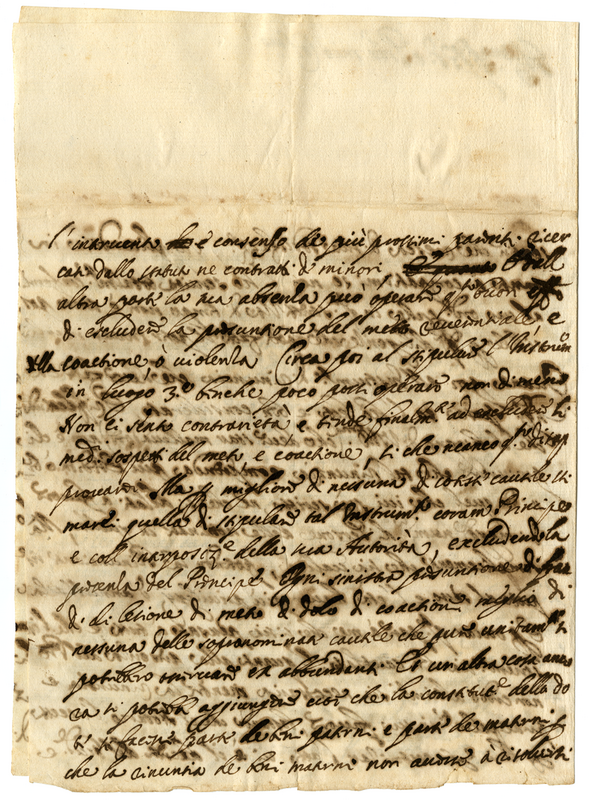 l'intervento e consenso de più prossimi parenti ricer
cati dallo statuto ne contratti di minori, e dall
altra parte la sua absenza può operare q.to buon eff.
di escludere la presuntione del meto reverentiale, e
della coactione, o violenza Circa poi al stipulare l'Instrum.
in luogo 3.o benche poco possi operare non di meno
Non ci sento contrarietà e tende finalm.e ad escludere li
med.i sospetti del meto, e coactione, si che neanco
provarei Ma migliore di nessuna di coteste cautele sti
marei quella di stipulare tal Instrum.to coram Principe
e coll' interposit.e della sua Autorità, escludendo la
presenza del Principe Ogni sinistra presuntione
di lesione di meto di dolo di coactione meglio di
nessuna delle sopranominate cautele che pure unitam.e si
potrebbero osservare ex abbundanti Et un altra cosa anco
ra si potrebbe aggiungere cioè che la constitut.e della do
te si facesse parte de beni paterni e parte de materni
che la rinuntia de beni materni non